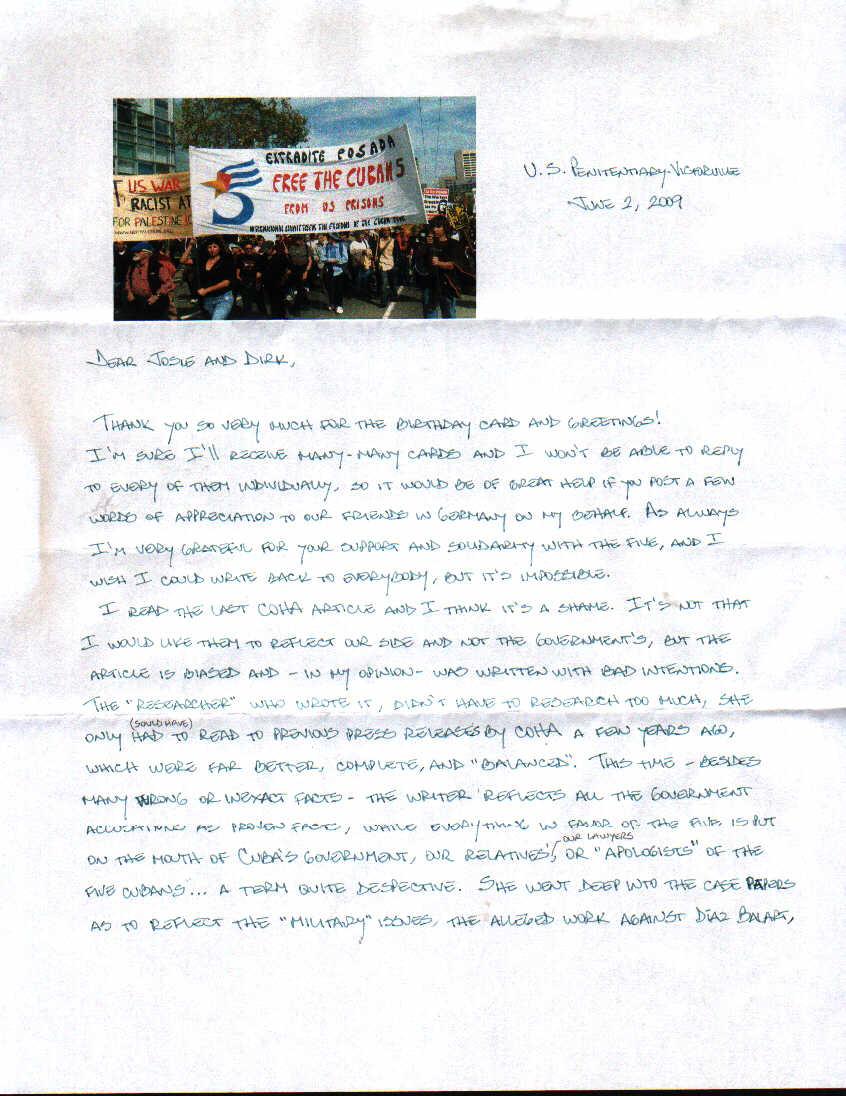 EXTRADITE POSADA
FREE THE CUBAN 5
FROM US PRISONS
US WAR
RACIST AT
FOR PALESTINE
U.S. PENITENTIARY-VICTORVILLE
JUNE 2, 2009
DEAR JOSIE AND DIRK,
THANK YOU SO VERY MUCH FOR THE BIRTHDAY CARD AND GREETINGS!
I'M SURE I'll RECEIVE MANY-MANY CARDS AND I WON'T BE ABLE TO REPLY
TO EVERY OF THEM INDIVIDUALLY, SO IT WOULD BE OF GREAT HELP IF YOU POST A FEW
WORDS OF APPRECIATION TO OUR FRIENDS IN GERMANY ON MY BEHALF. AS ALWAYS
I'M VERY GRATEFUL FOR YOUR SUPPORT AND SOLIDARITY WITH THE FIVE, AND I
WISH I COULD WRITE BACK TO EVERYBODY, BUT IT'S IMPOSSIBLE.
I READ THE LAST COHA ARTICLE AND I THINK IT'S A SHAME. IT'S NOT THAT
I WOULD LIKE THEM TO REFLECT OUR SIDE AND NOT THE GOVERNMENT'S, BUT THE
ARTICLE IS BIASED AND - IN MY OPINION - WAS WRITTEN WITH BAD INTENTIONS.
THE "RESEARCHER" WHO WROTE IT, DIDN'T HAVE TO RESEARCH TOO MUCH, SHE
(SOULD HAVE)
ONLY HAD TO READ TO PREVIOUS PRESS RELEASES BY COHA A FEW YEARS AGO,
WHICH WERE FAR BETTER, COMPLETE, AND "BALANCED". THIS TIME - BESIDES
MANY WRONG OR INEXACT FACTS - THE WRITER REFLECTS ALL THE GOVERNMENT
ACCUSATIONS AS PROVEN FACTS, WHILE EVERYTHING IN FAVOR OF THE FIVE IS PUT
OUR LAWYERS
ON THE MOUTH OF CUBA'S GOVERNMENT, OUR RELATIVES', OR "APOLOGISTS" OF THE
FIVE CUBANS... A TERM QUITE DESPECTIVE. SHE WENT DEEP INTO THE CASE PAPERS
AS TO REFLECT THE "MILITARY" ISSUES, THE ALLEGED WORK AGAINST DÍAZ BALART,